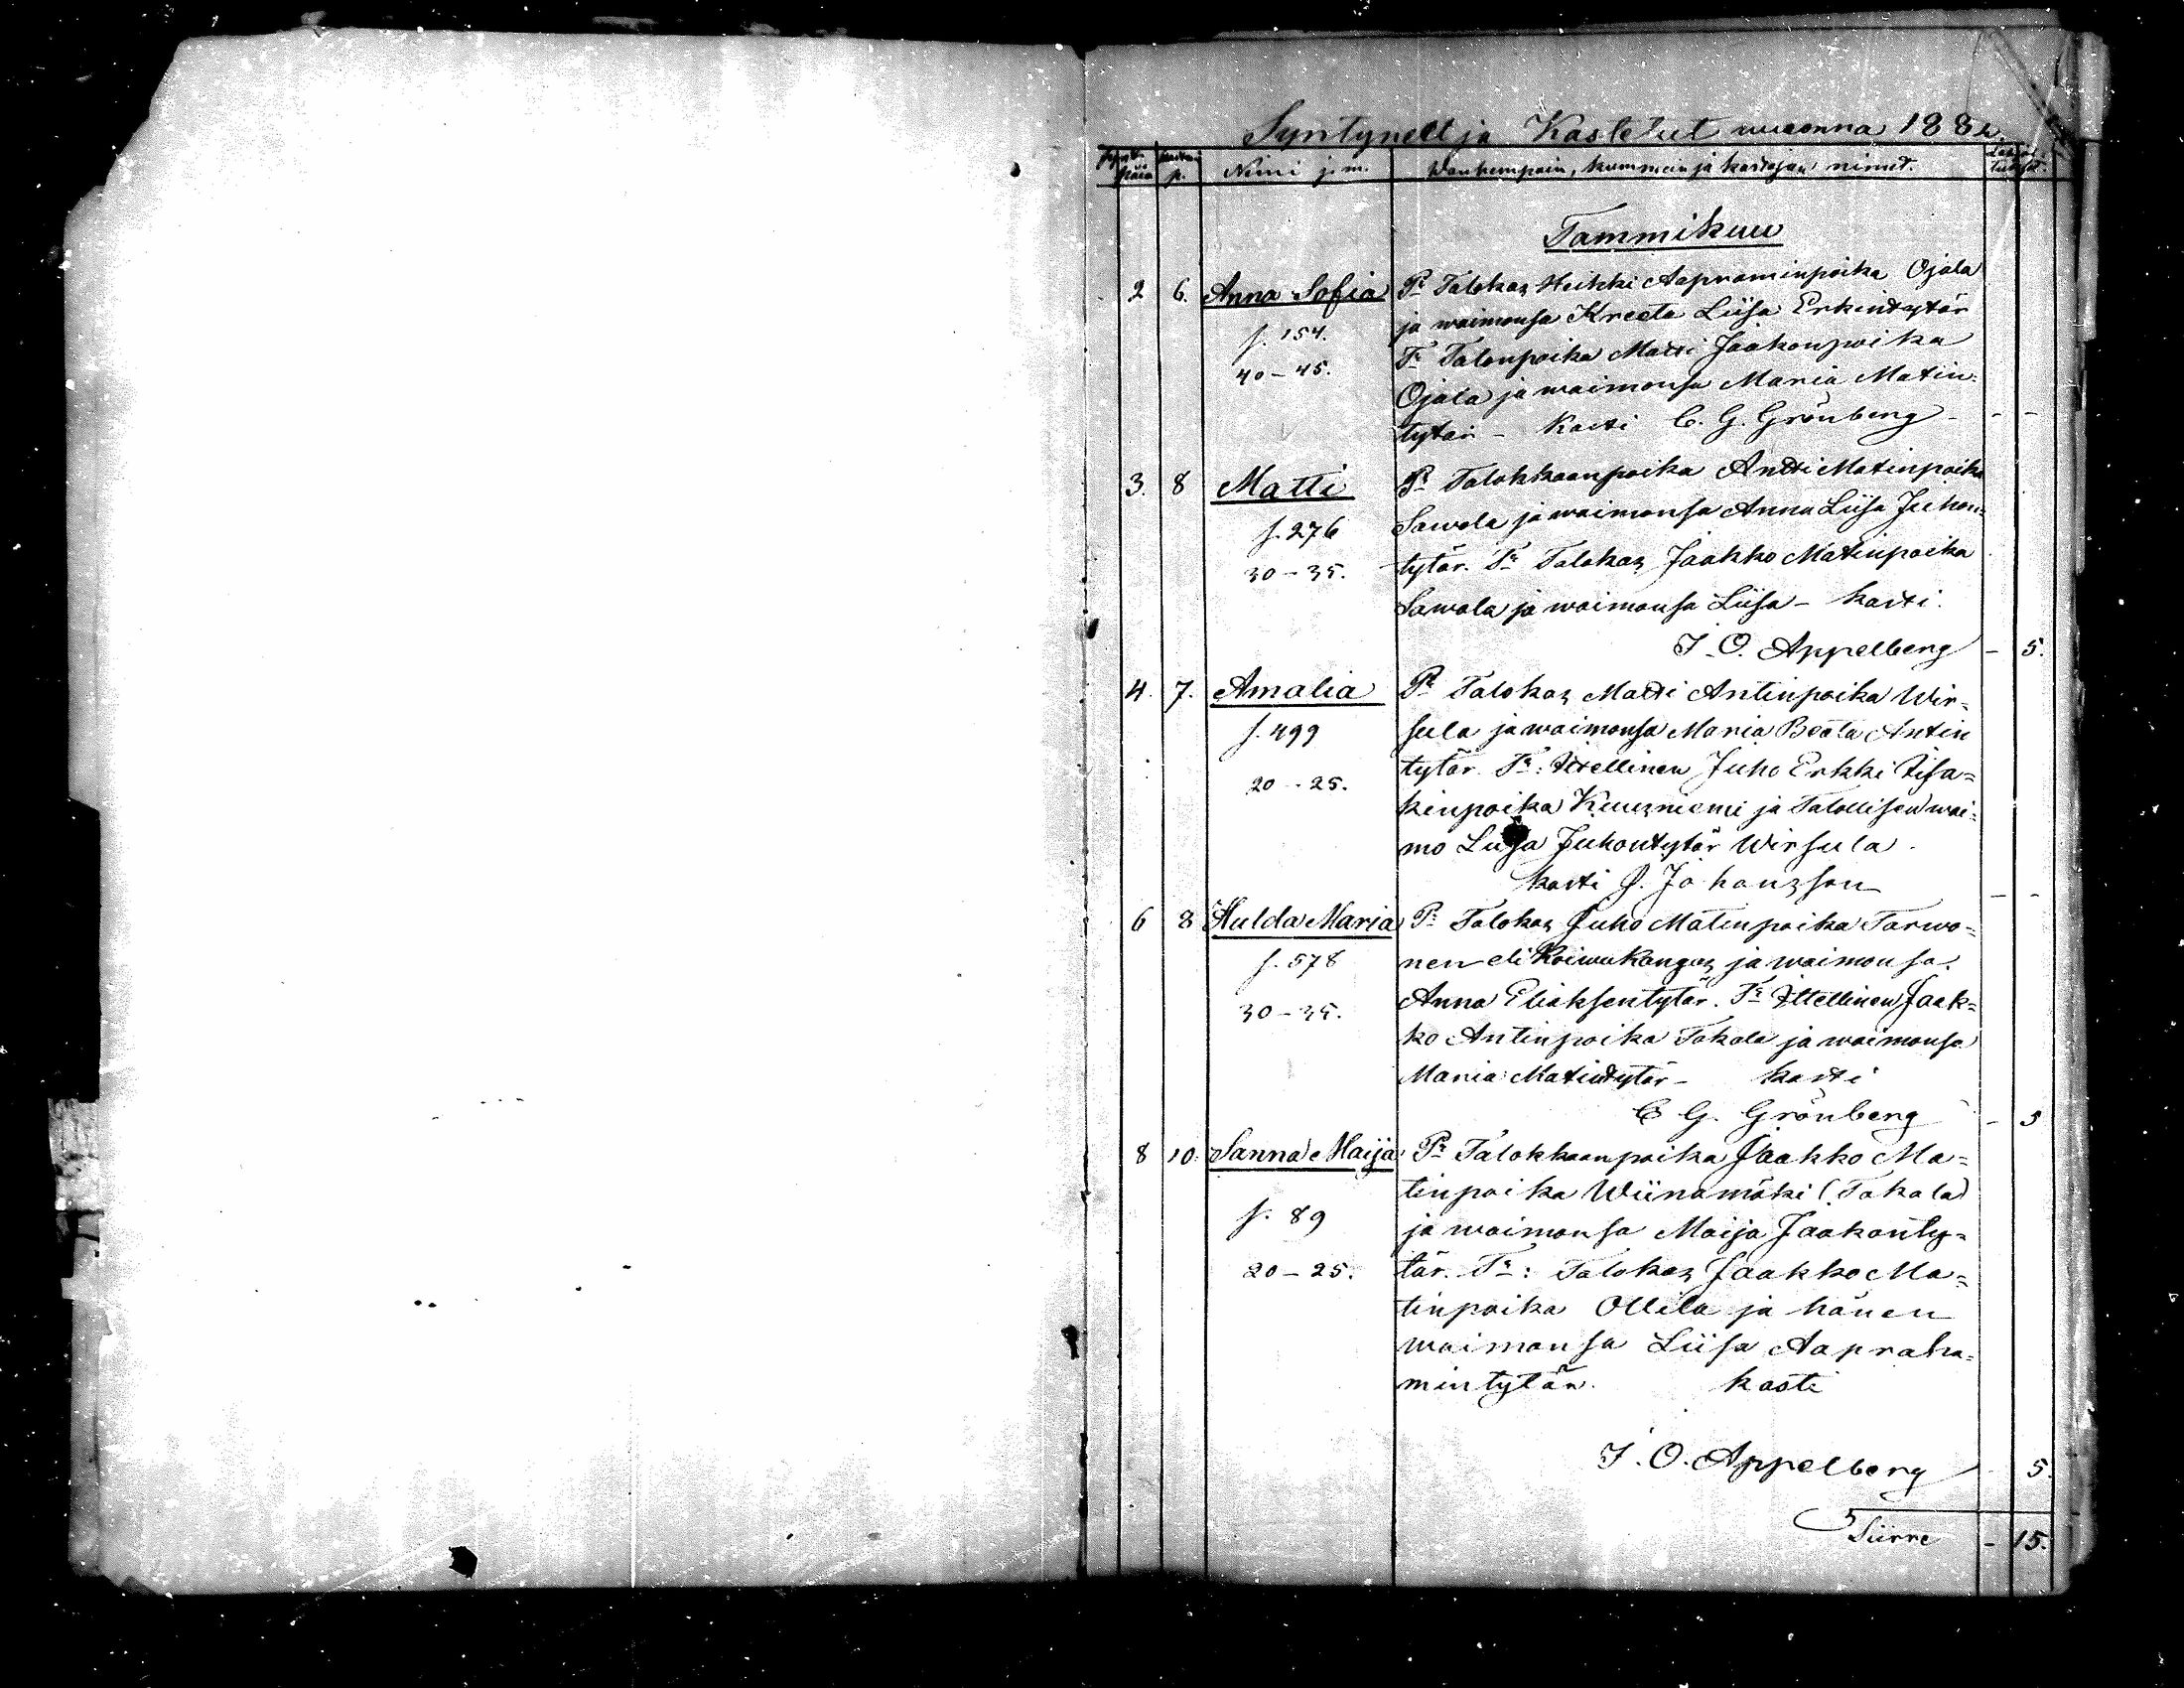 Syntyneet ja Kastetut wuonna 188
Synt. päiä Kaste p. Nimi j.m. Wanhempain, kummein ja kastajan nimet.
Tammikuu
2 6. Anna Sofia Pr Talokas Heikki Aapraminpoika Ojala
f. 154. ja waimonsa Kreeta Liisa Erkintytär
40-45. Tr Talonpoika Matti Jaakonpoika
Ojala ja waimonsa Maria Matin=
tytär - Kasti C. G. Grönberg - - -
3. 8 Matti Pr Talokkaanpoika Antti Matinpoika
f. 276 Sawola ja waimonsa Anna Liisa Juhon=
30-35. tytär. Tr Talokas Jaakko Matinpoika
Sawola ja waimonsa Liisa - Kasti.
J. O. Appelberg - 5.
4. 7. Amalia Pr Talokas Matti Antinpoika Wir=
f. 499 sula ja waimonsa Maria Beata Antin
20-25. tytär. Tr: Itellinen Juho Erkki Iisa=
kinpoika Kuusniemi ja Talollisen wai=
mo Liisa Juhontytär Wirsula.
Kasti J. Johansson - -
6 8 Hulda Maria Pr Talokas Juho Matinpoika Tarwo=
f. 578 nen eli Koiwukangas ja waimonsa
30-35. Anna Eliaksentytär. Tr Ittellinen Jaak=
ko Antinpoika Takala ja waimonsa
Maria Matintytär - Kasti
C G. Grönberg - 5
8 10. Sanna Maija Pr Talokkaanpoika Jaakko Ma=
tinpoika Wiinamäki (Takala)
f. 89 ja waimonsa Maija Jaakonty=
20-25. tär. Tr: Talokas Jaakko Ma=
tinpoika Ollila ja hänen
waimonsa Liisa Aapraha=
mintytär. Kasti
J. O. Appelberg 5.
Siirre - 15.